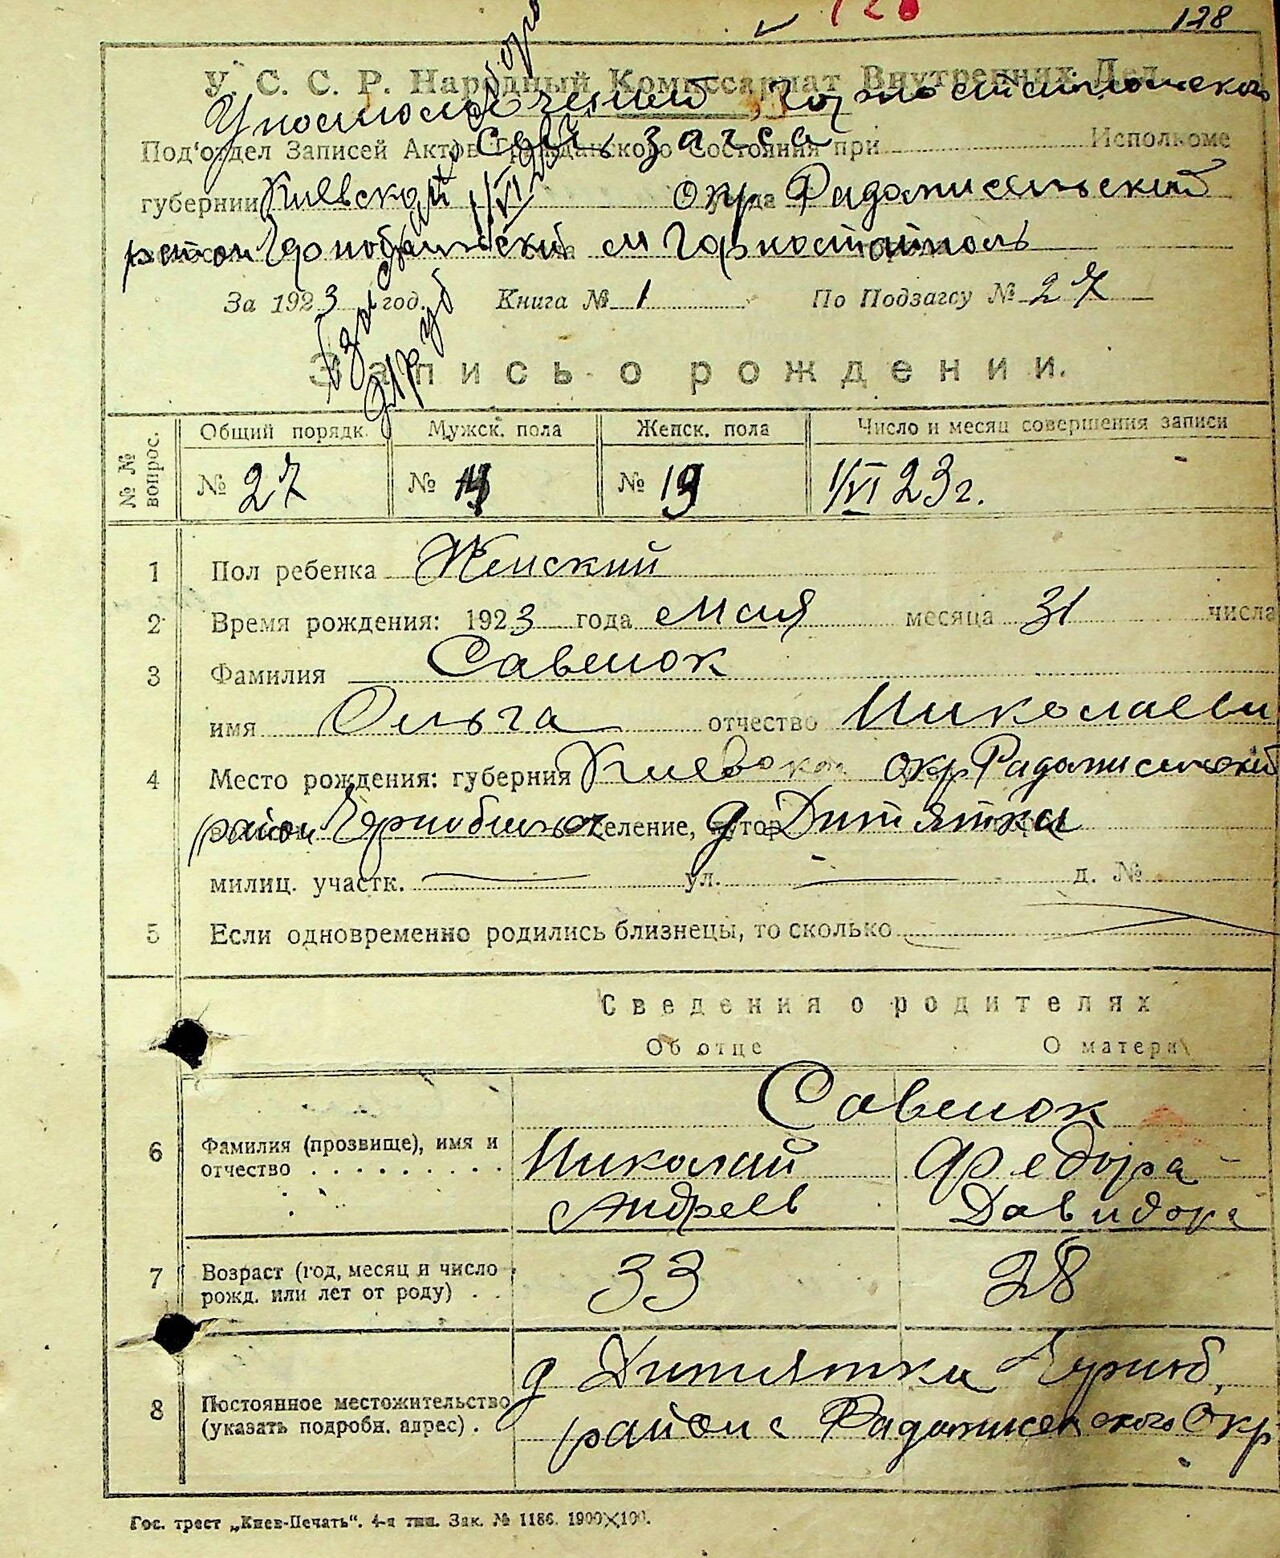 128
128
У. С. С. Р. Народный Комиссариат Внутренних Дел
Уполномоченный Горностайпольского
Под'отдел Записей Актов Гражданского Состояния при Исполкоме
загса
губернии Киевской окр Радомисельский
район Чернобильский м Горностайполь
За 1923 год. Книга № 1 По Подзагсу № 27
1/VI 23
Запись о рождении.
№№ вопрос. Общий порядк. Мужск. пола Женск. пола Число и месяц совершения записи
№ 27 № № 19 1/VI 23 г.
1 Пол ребенка Женский
2 Время рождения: 1923 года мая месяца 31 числа
3 Фамилия Савенок
имя Ольга отчество Николаевн
4 Место рождения: губерния Киевской окр Радомисельский
район Чернобильск селение, хутор д Дитятки
милиц. участк. ул. д. №
5 Если одновременно родились близнецы, то сколько
Сведения о родителях
Об отце О матери
Савенок
6 Фамилия (прозвище), имя и отчество Николай Федора
Андреев Давидова
7 Возраст (год, месяц и число рожд. или лет от роду) 33 28
8 Постоянное местожительство (указать подробн. адрес). д Дитятки Черноб,
района Радомисельского Окр
Гос. трест „Киев-Печать“. 4-я тип. Зак. № 1186. 1900×100.